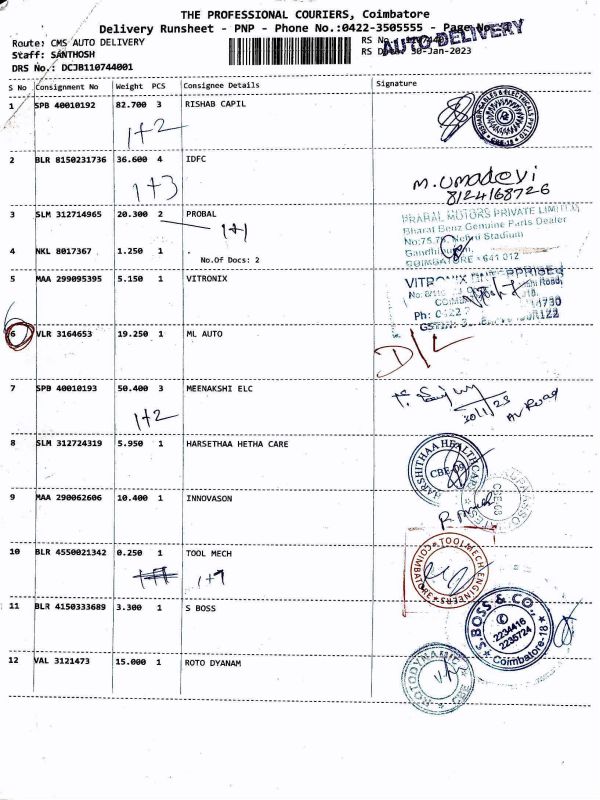 THE PROFESSIONAL COURIERS, Coimbatore
Delivery Runsheet - PNP - Phone No.:0422-3505555 - Page No.
Route: CMS AUTO DELIVERY
RS No.
AUTO DELIVERY
Staff: SANTHOSH
RS Date: 30-Jan-2023
DRS No.: DCJB110744001
S No Consignment No Weight PCS Consignee Details Signature
1 SPB 40010192 82.700 3 RISHAB CAPIL
1+2
CBE-18
2 BLR 8150231736 36.600 4 IDFC
1+3
M. Umadevi
8124168726
3 SLM 312714965 20.300 2 PROBAL
1+1
PRABAL MOTORS PRIVATE LIMITED
Bharat Benz Genuine Parts Dealer
No:75,76, Nehru Stadium
COIMBATORE - 641 012
4 NKL 8017367 1.250 1 .
No.Of Docs: 2
5 MAA 299095395 5.150 1 VITRONIX
VITRONIX ENTERPRISES
6 VLR 3164653 19.250 1 ML AUTO
D/L
7 SPB 40010193 50.400 3 MEENAKSHI ELC
1+2
AV Road
8 SLM 312724319 5.950 1 HARSETHAA HETHA CARE
HARSHITHAA HEALTHCARE
CBE-09
9 MAA 290062606 10.400 1 INNOVASON
CBE-03
10 BLR 4550021342 0.250 1 TOOL MECH
TOOLMECH ENGINEERS
COIMBATORE
11 BLR 4150333689 3.300 1 S BOSS
S.BOSS & CO.,
2234416
2235724
Coimbatore-18
12 VAL 3121473 15.000 1 ROTO DYANAM
ROTODYNAMIC
CBE